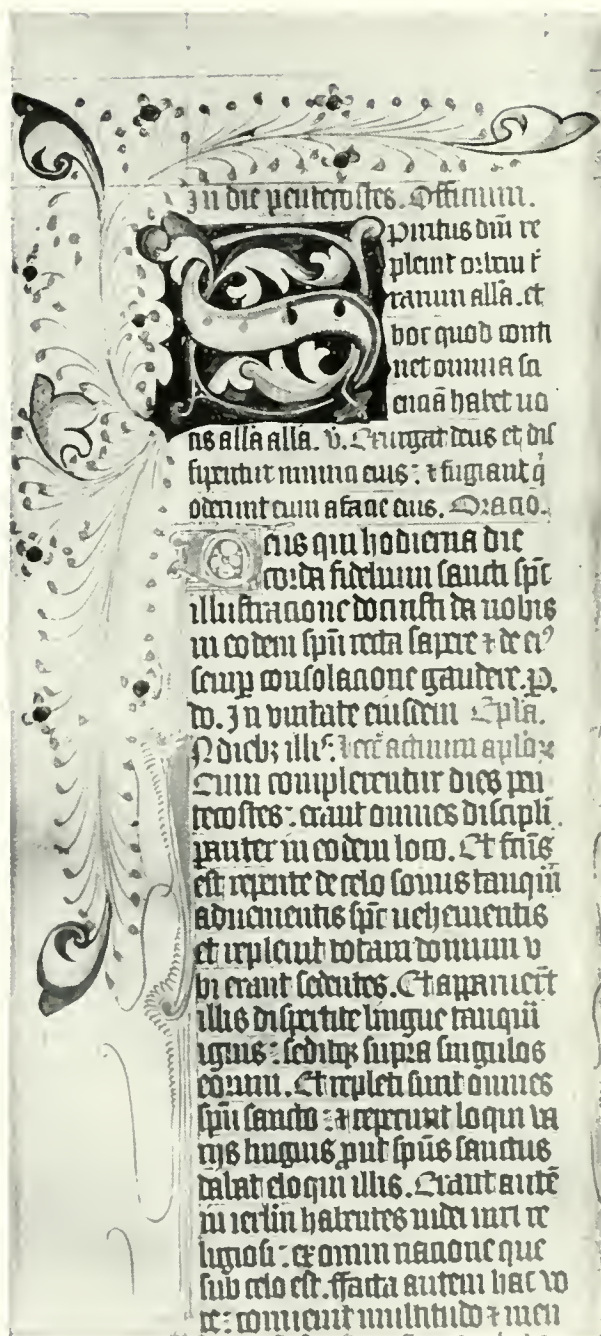 In die penthecostes. Officium.
Spiritus dñi re
pleuit orbem t̄
rarum alla̅. et
hoc quod conti
net omnia sci
enciā habet uo
cis alla̅ alla̅. v̄. Exurgat deus et dis
sipentur inimici eius : ⁊ fugiant q̇
oderunt eum a facie eius. Oracio.
Deus qui hodierna die
corda fidelium sancti spc̄
illustracione docuisti da nobis
in eodem spū recta sapere ⁊ de eiꝰ
semꝑ consolacione gaudere. ꝑ.
do. In unitate eiusdem Epl̄a.
In diebꝫ illis. lecc̄ actuum apl̄oꝝ
Cum complerentur dies pen
tecostes : erant omnes discipl̄i
pariter in eodem loco. Et fc̄us
est repente de celo sonus tanquā
aduenientis spc̄ uehementis
et repleuit totam domum u
bi erant sedentes. Et apparuer̄t
illis dispertite lingue tanquā
ignis : seditqꝫ supra singulos
eorum. Et repleti sunt omnes
spū sancto : ⁊ ceperunt loqui va
rijs linguis ꝓut spūs sanctus
dabat eloqui illis. Erant autē
in ierl̄m habitantes iudei uiri re
ligiosi : ex omni nacione que
sub celo est. ffacta autem hac vo
ce : conuenit multitudo ⁊ men